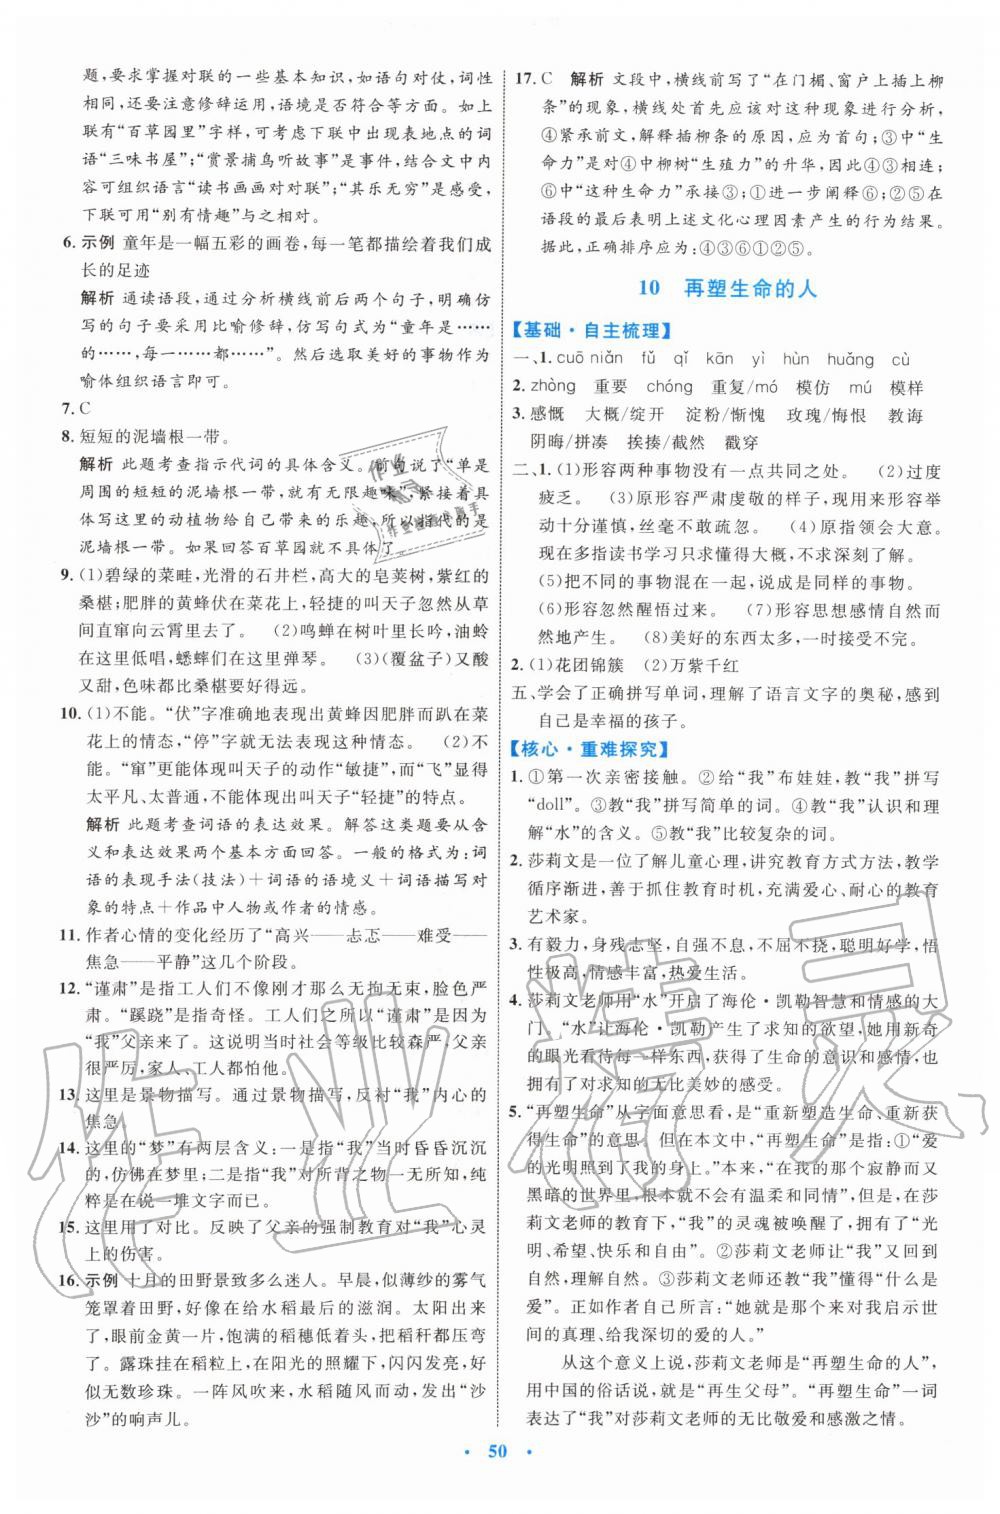 题，要求掌握对联的一些基本知识，如语句对仗，词性
相同，还要注意修辞运用，语境是否符合等方面。如上
联有“百草园里”字样，可知下联中应出现表地点的词
语“三味书屋”；“赏景捕鸟听故事”是事件，结合文中内
容可组织语言“读书画画对对联”；“其乐无穷”是感受，
下联可拟定“别有情趣”与之相对应。
6. 示例 童年是一幅五彩的画卷，每一笔都描绘着我们成
长的足迹
解析 通读语段，通过分析横线前两个句子，可明确仿
写的句子要采用比喻修辞，仿写句式为“童年是……
的……，每一……都……”。然后选取美好的事物作为
喻体组织语言即可。
7. C
8. 短短的泥墙根一带。
解析 此题考查指示代词的具体含义。前句说了“单是
周围的短短的泥墙根一带，就有无限趣味”，紧接着具
体写这里的动植物给自己带来的乐趣，所以指代的是
泥墙根一带。如果回答百草园就不具体了。
9. (1)碧绿的菜畦，光滑的石井栏，高大的皂荚树，紫红的
桑椹；肥胖的黄蜂伏在菜花上，轻捷的叫天子忽然从草
间直窜向云霄里去了 (2)鸣蝉在树叶里长吟，油蛉
在这里低唱，蟋蟀们在这里弹琴。 (3)(覆盆子)又酸
又甜，色味都比桑椹要好得远。
10. (1)不能。“伏”字准确地表现出黄蜂因肥胖而趴在菜
花上的情态，“停”字就无法表现这种情态。 (2)不
能。“窜”更能体现出叫天子的动作“敏捷”，而“飞”显得
太平凡、太普通，不能体现叫天子“轻捷”的特点。
解析 此题考查词语的表达效果。解答这类题要从含
义和表达效果两个基本方面回答。一般的格式为：词
语的表现手法(技法)＋词语的语境义＋词语描写对
象的特点＋作品中人物或作者的情感。
11. 作者心情的变化经历了“高兴——忐忑——难受——
焦急——平静”这几个阶段。
12. “谨肃”是指工人们不像刚才那么无拘无束，脸色严
肃。“蹊跷”是指奇怪。工人们之所以“谨肃”是因为
“我”父亲来了。这说明当时社会等级比较森严，父亲
很严厉，家人、工人都怕他。
13. 这里是景物描写。通过景物描写，反衬“我”内心的
焦急
14. 这里的“梦”有两层含义：一是指“我”当时昏昏沉沉
的，仿佛在梦里；二是指“我”对所背之物一无所知，纯
粹是在说一堆文字而已。
15. 这里用了对比。反映了父亲的强制教育对“我”心灵
上的伤害。
16. 示例 十月的田野景致多么迷人。早晨，似薄纱的雾气
笼罩着田野，好像在给水稻最后的滋润。太阳出来
了，眼前金黄一片，饱满的稻穗低着头，把稻秆都压弯
了。露珠挂在稻粒上，在阳光的照耀下，闪闪发亮，宛
如无数珍珠。一阵风吹来，水稻随风而动，发出“沙
沙”的响声儿。
17. C 解析 文段中，横线前写了“在门楣、窗户上插上柳
条”的现象，横线处首先应该对这种现象进行分析，
④紧承前文，解释插柳条的原因，应为首句；③中“生
命力”是对④中柳树“生殖力”的升华，因此④③相连；
⑥中“这种生命力”承接③；①进一步阐释⑥；②⑤在
语段的最后表明上述文化心理因素产生的行为结果。
据此，正确排序应为：④③⑥①②⑤。
10 再塑生命的人
【基础·自主梳理】
一、1. cuō niǎn fǔ qǐ kān yì hùn huǎng cù
2. zhòng 重要 chóng 重复/mó 模仿 mú 模样
3. 感慨 大概/绽开 淀粉/惭愧 玫瑰/悔恨 教诲
阴晦/拼凑 挨揍/截然 戳穿
二、1. (1)形容两种事物没有一点共同之处。 (2)过度
疲乏。 (3)原形容严肃虔敬的样子，现在形容举
动十分谨慎，丝毫不敢疏忽。 (4)原指领会大意。
现在多指读书学习只求懂得大概，不求深刻了解。
(5)把不同的事物混在一起，说成是同样的事物。
(6)形容忽然醒悟过来。 (7)形容思想感情自然而
然地产生。 (8)美好的东西太多，一时接受不完。
2. (1)花团锦簇 (2)万紫千红
五、学会了正确拼写单词，理解了语言文字的奥秘，感到
自己是幸福的孩子。
【核心·重难探究】
1. ①第一次亲密接触。②给“我”布娃娃，教“我”拼写
“doll”。③教“我”拼写简单的词。④教“我”认识和理
解“水”的含义。⑤教“我”比较复杂的词。
2. 莎莉文是一位了解儿童心理，讲究教育方式方法，教学
循序渐进，善于抓住教育时机，充满爱心、耐心的教育
艺术家。
3. 有毅力，身残志坚，自强不息，不屈不挠，聪明好学，悟
性极高，情感丰富，热爱生活。
4. 莎莉文老师用“水”开启了海伦·凯勒智慧和情感的大
门。“水”让海伦·凯勒产生了求知的欲望，她用新奇
的眼光看待每一样东西，获得了生命的意识和感情，也
拥有了对求知的无比美妙的感受。
5. “再塑生命”从字面意思看，是“重新塑造生命、重新获
得生命”的意思。但在本文中，“再塑生命”是指：①“爱
的光明照到了我的身上”。本来，“在我的那个寂静而又
黑暗的世界里，根本就不会有温柔和同情”，但在莎
莉文老师的教育下，“我”的灵魂被唤醒了，拥有了“光
明、希望、快乐和自由”。②莎莉文老师让“我”认识了
许多事物和大自然。③莎莉文老师还教“我”懂得“什么是
爱”。正如作者所言：“她就是那个来对我启示世
间的真理、给我深切的爱的人。”
从这个意义上说，莎莉文老师是“再塑生命的人”，
用中国的俗话说，就是“再生父母”。“再塑生命”一词
表达了“我”对莎莉文老师的无比敬爱和感激之情。
· 50 ·
作业精灵